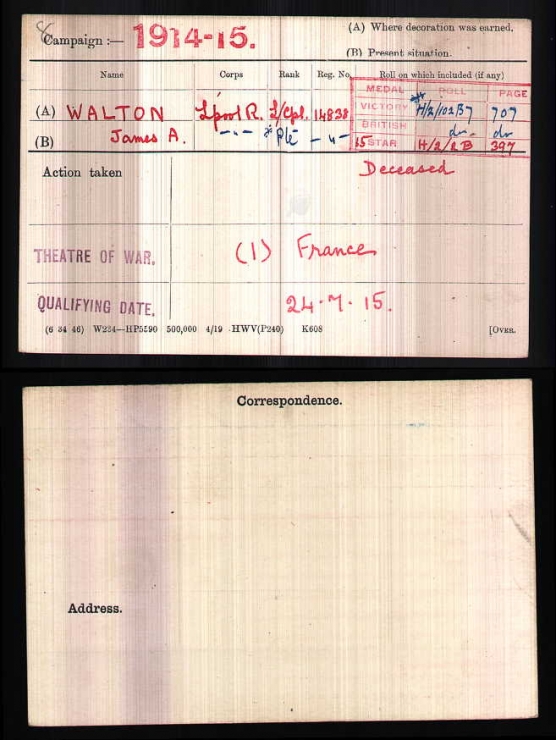 Campaign :— 1914-15.
(A) Where decoration was earned.
(B) Present situation.
Name Corps Rank Reg. No. Roll on which included (if any)
MEDAL ROLL PAGE
(A) WALTON L'pool R. L/Cpl. 14838 VICTORY H/2/102B7 707
BRITISH do. do
(B) James A. —"— *Pte —"— 15 STAR H/2/2B 397
Action taken Deceased
THEATRE OF WAR. (1) France
QUALIFYING DATE. 24.7.15.
(6 34 46) W234—HP5590 500,000 4/19 HWV(P240) K608 [OVER.
Correspondence.
Address.